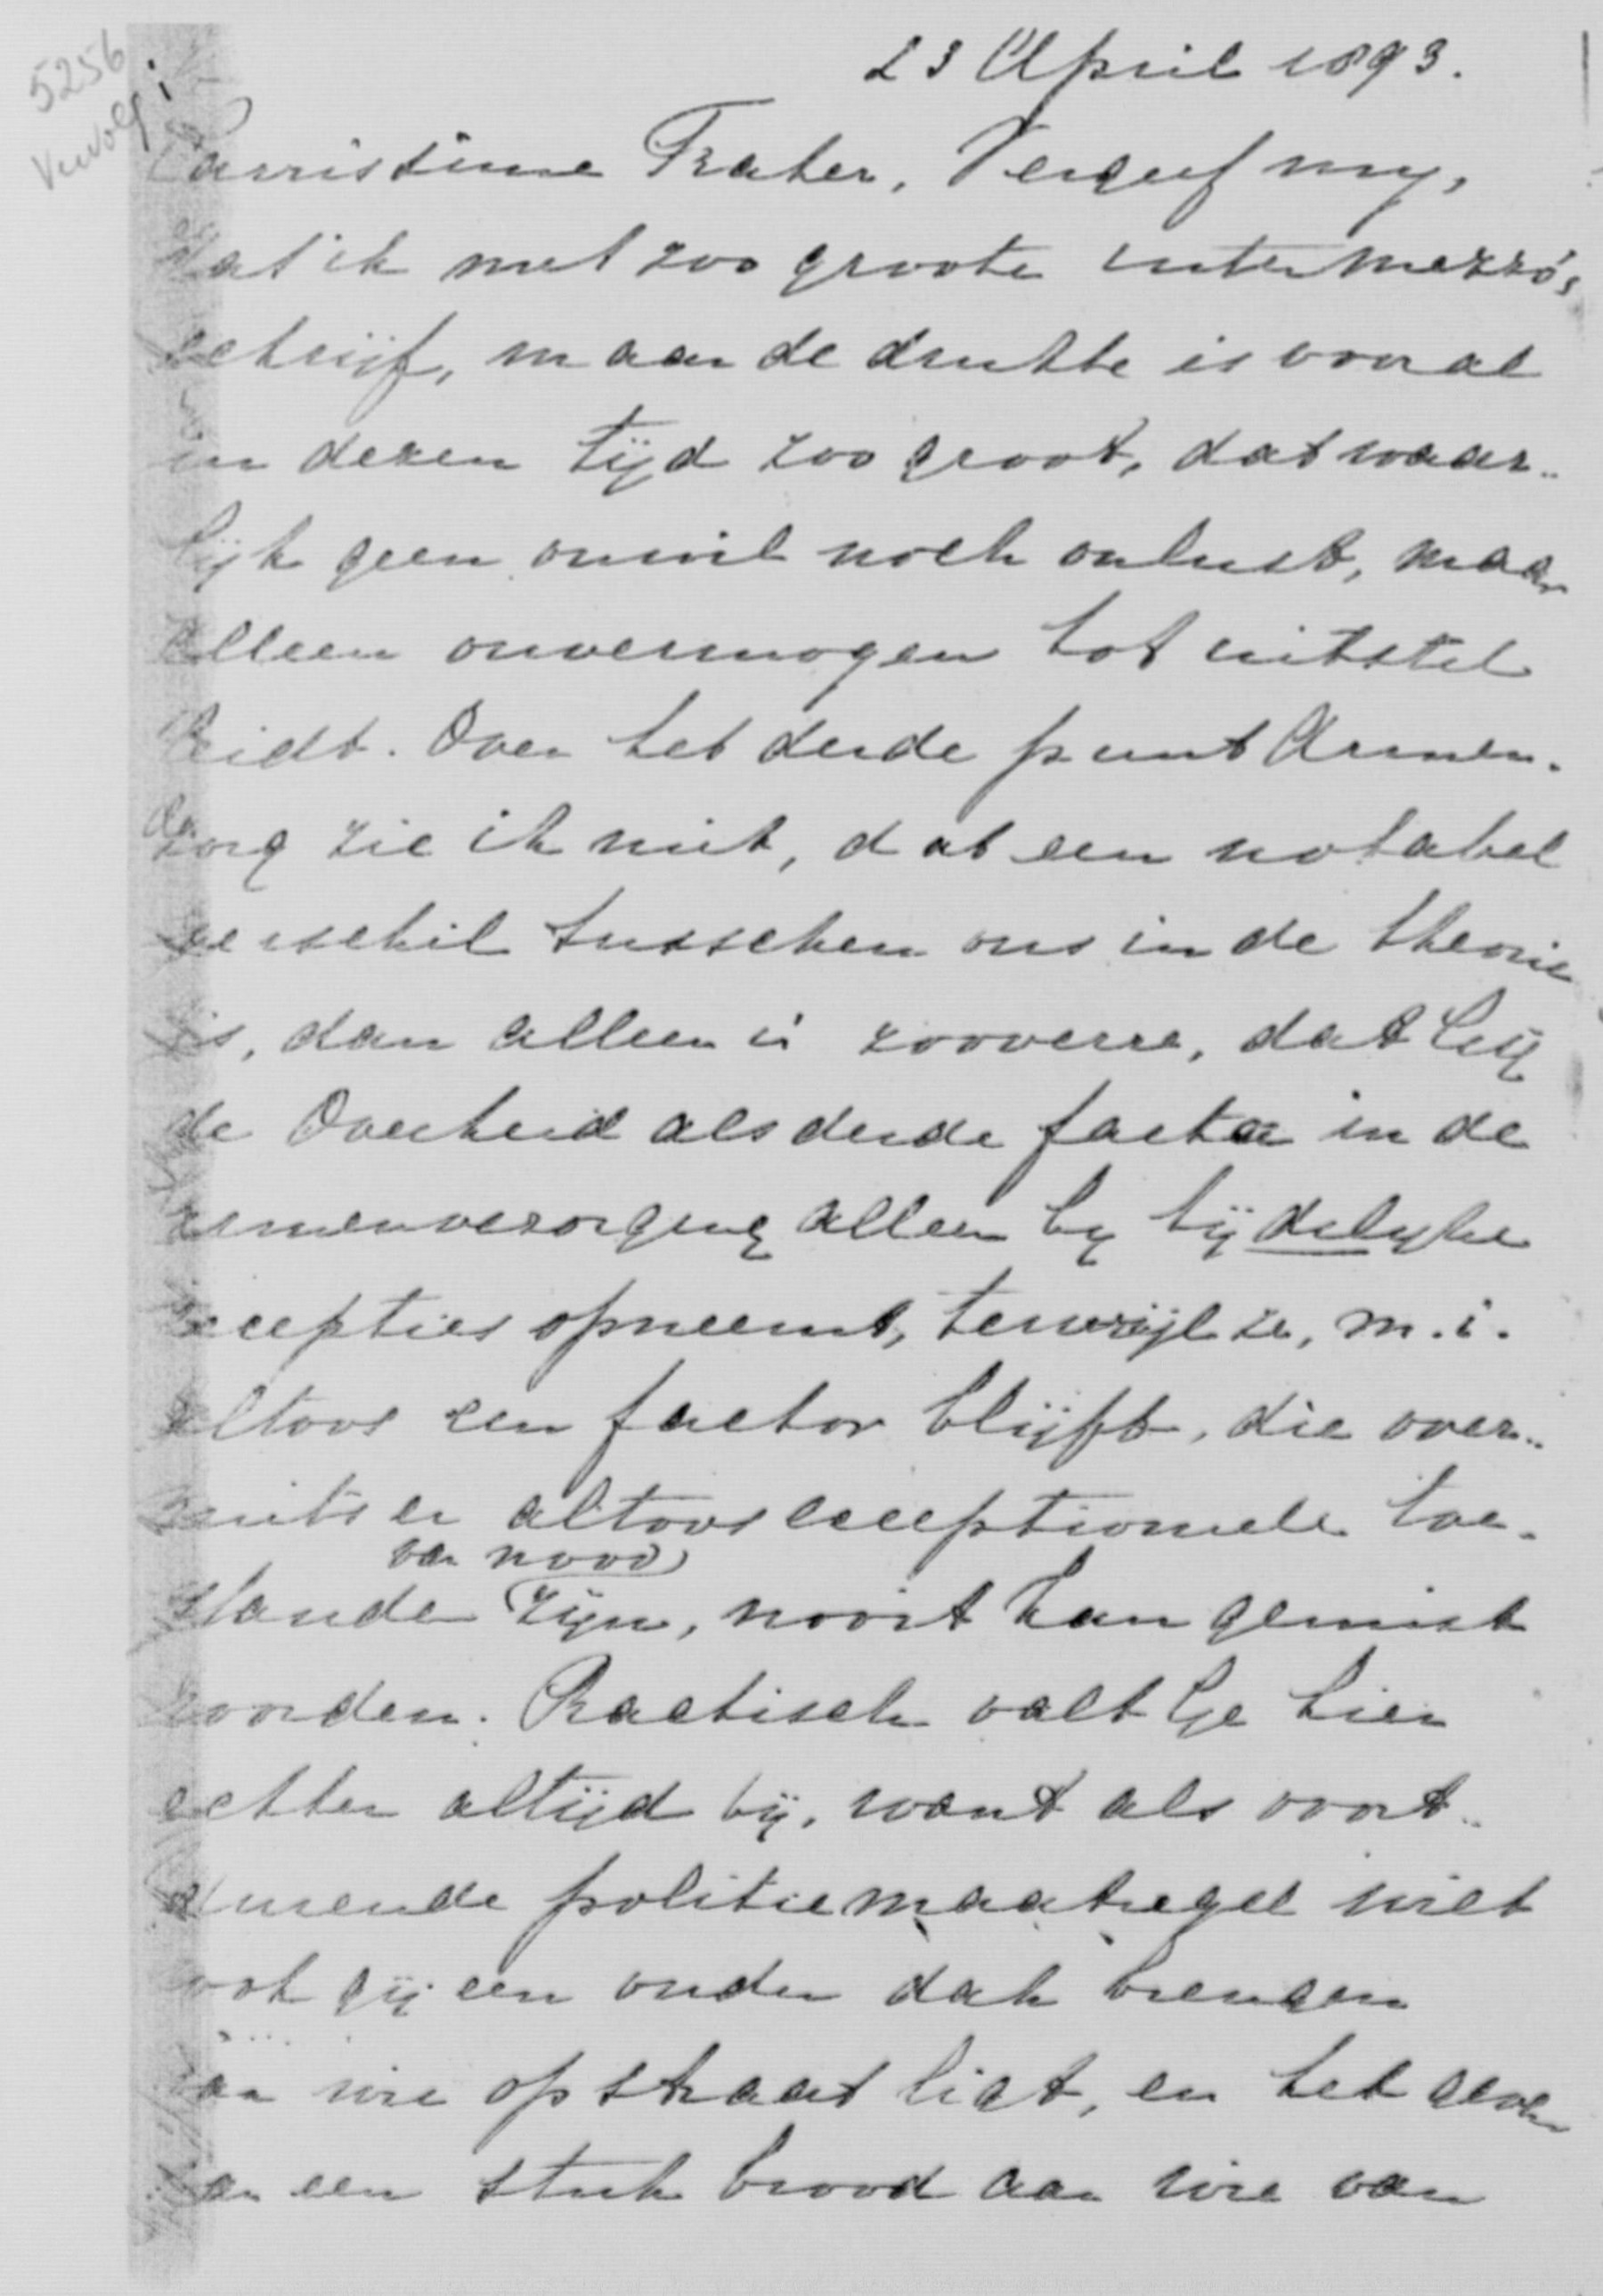 5256
Vervolg
23 April 1893.
Carrissime Frater, Vergeef my,
dat ik met zoo groote intermezzo's
schrijf, maar de drukte is vooral
in dezen tijd zoo groot, dat waar-
lijk geen onwil noch onlust, maar
alleen onvermogen tot uitstel
leidt. Over het derde punt Armen-
zorg zie ik niet, dat een notabel
verschil tusschen ons in de theorie
is, dan alleen in zooverre, dat Gij
de Overheid als derde factor in de
armenverzorging alleen by tijdelyke
excepties opneemt, terwijl ze, m.i.
altoos een factor blijft, die over-
mits er altoos exceptioneele toe-
standen van nood zijn, nooit kan gemist
worden. Practisch valt Ge hier
echter altijd bij, want als voort-
durende politiemaatregel wilt
ook gij een onder dak brengen
van wie op straat ligt, en het geven
van een stuk brood aan wie van